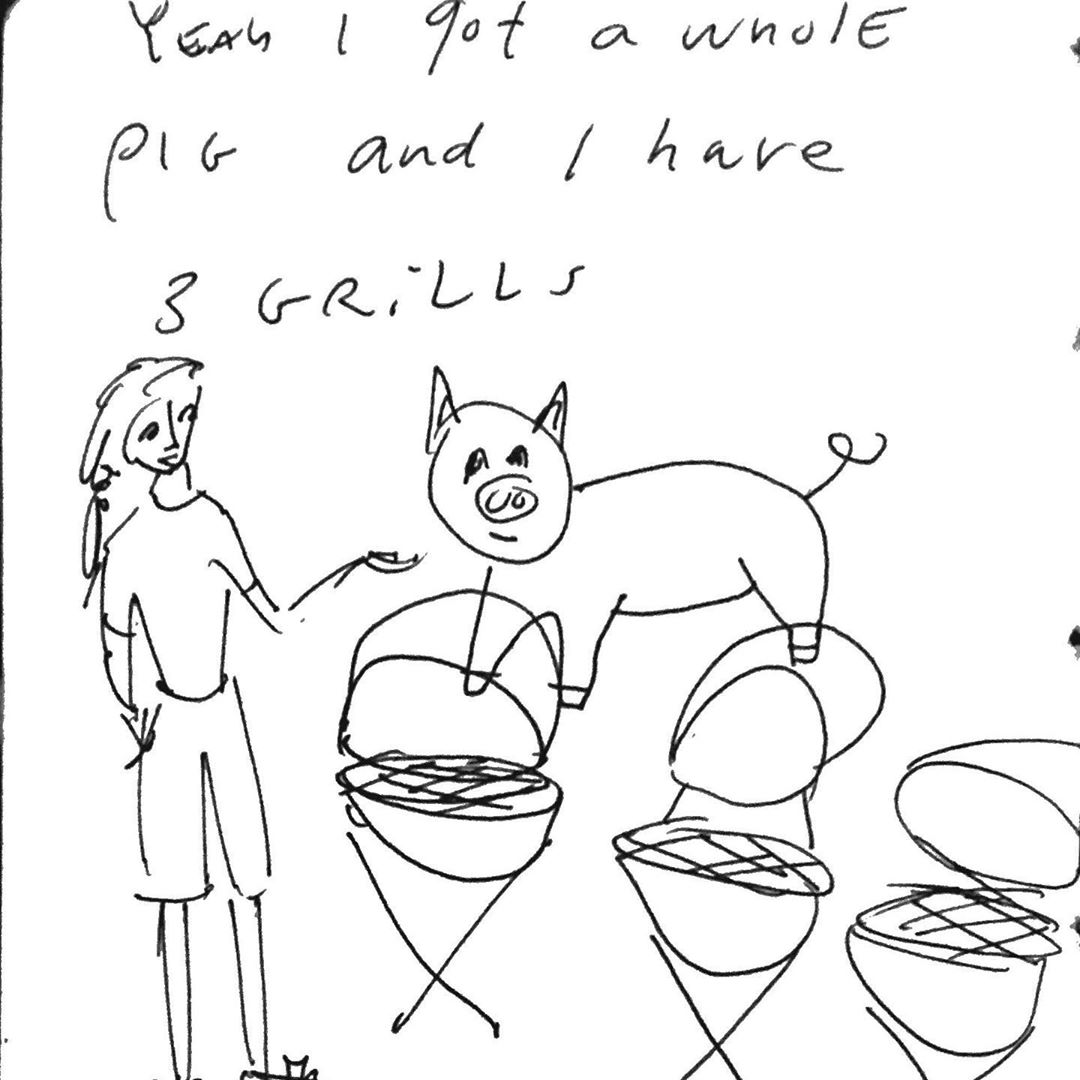 YEAh I got a whole
PIG and I have
3 GRiLLS